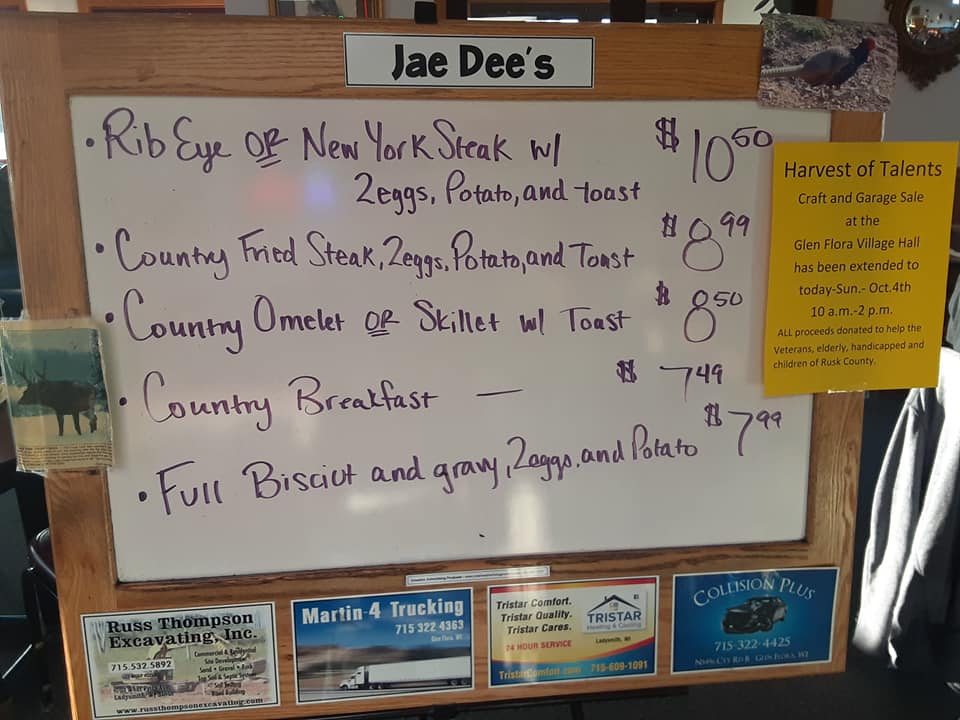 Jae Dee's
• Rib Eye OR New York Steak w/ $10.50
2eggs, Potato, and toast
• Country Fried Steak, 2eggs, Potato, and Toast $8.99
• Country Omelet OR Skillet w/ Toast $8.50
• Country Breakfast — $7.49
• Full Bisciut and gravy, 2eggs, and Potato $7.99
Harvest of Talents
Craft and Garage Sale
at the
Glen Flora Village Hall
has been extended to
today-Sun.- Oct.4th
10 a.m.-2 p.m.
ALL proceeds donated to help the
Veterans, elderly, handicapped and
children of Rusk County.
Russ Thompson
Excavating, Inc.
715.532.5892
Commercial & Residential
Site Development
Sand • Gravel • Rock
Top Soil & Septic Systems
Road Building
Ladysmith, WI
www.russthompsonexcavating.com
Martin-4 Trucking
715 322 4363
Glen Flora, WI
Tristar Comfort.
Tristar Quality.
Tristar Cares.
24 HOUR SERVICE
TRISTAR
Heating & Cooling
Ladysmith, WI
TristarComfort.com 715-609-1091
COLLISION PLUS
715-322-4425
GLEN FLORA, WI